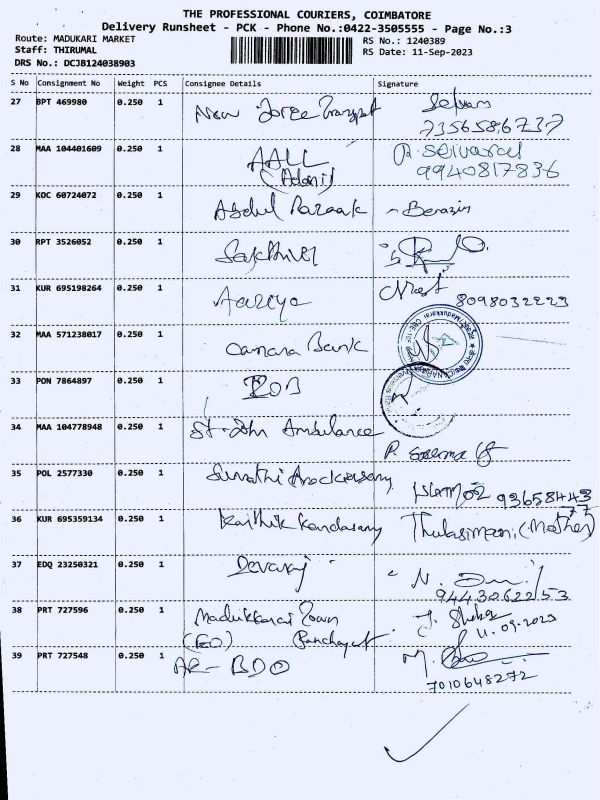 THE PROFESSIONAL COURIERS, COIMBATORE
Delivery Runsheet - PCK - Phone No.:0422-3505555 - Page No.:3
Route: MADUKARI MARKET
RS No.: 1240389
Staff: THIRUMAL
RS Date: 11-Sep-2023
DRS No.: DCJB124038903
S No Consignment No Weight PCS Consignee Details Signature
27 BPT 469980 0.250 1 New
7356586737
28 MAA 104401609 0.250 1 AALL
(Adani)
9940817836
29 KOC 60724072 0.250 1 Abdul Razaak
30 RPT 3526052 0.250 1 Sakthivel
31 KUR 695198264 0.250 1
8098032223
32 MAA 571238017 0.250 1 Canara Bank
33 PON 7864897 0.250 1 IOB
34 MAA 104778948 0.250 1 St-John Ambulance
35 POL 2577330 0.250 1 93658443
77
36 KUR 695359134 0.250 1 Karthik Kandasamy Thulasimani (Mother)
37 EDQ 23250321 0.250 1 Devaraj N.
9443062253
38 PRT 727596 0.250 1 Madukkarai Town J.
(EO) Panchayat 11.09.2023
39 PRT 727548 0.250 1 AE-BDO M.
7010648272